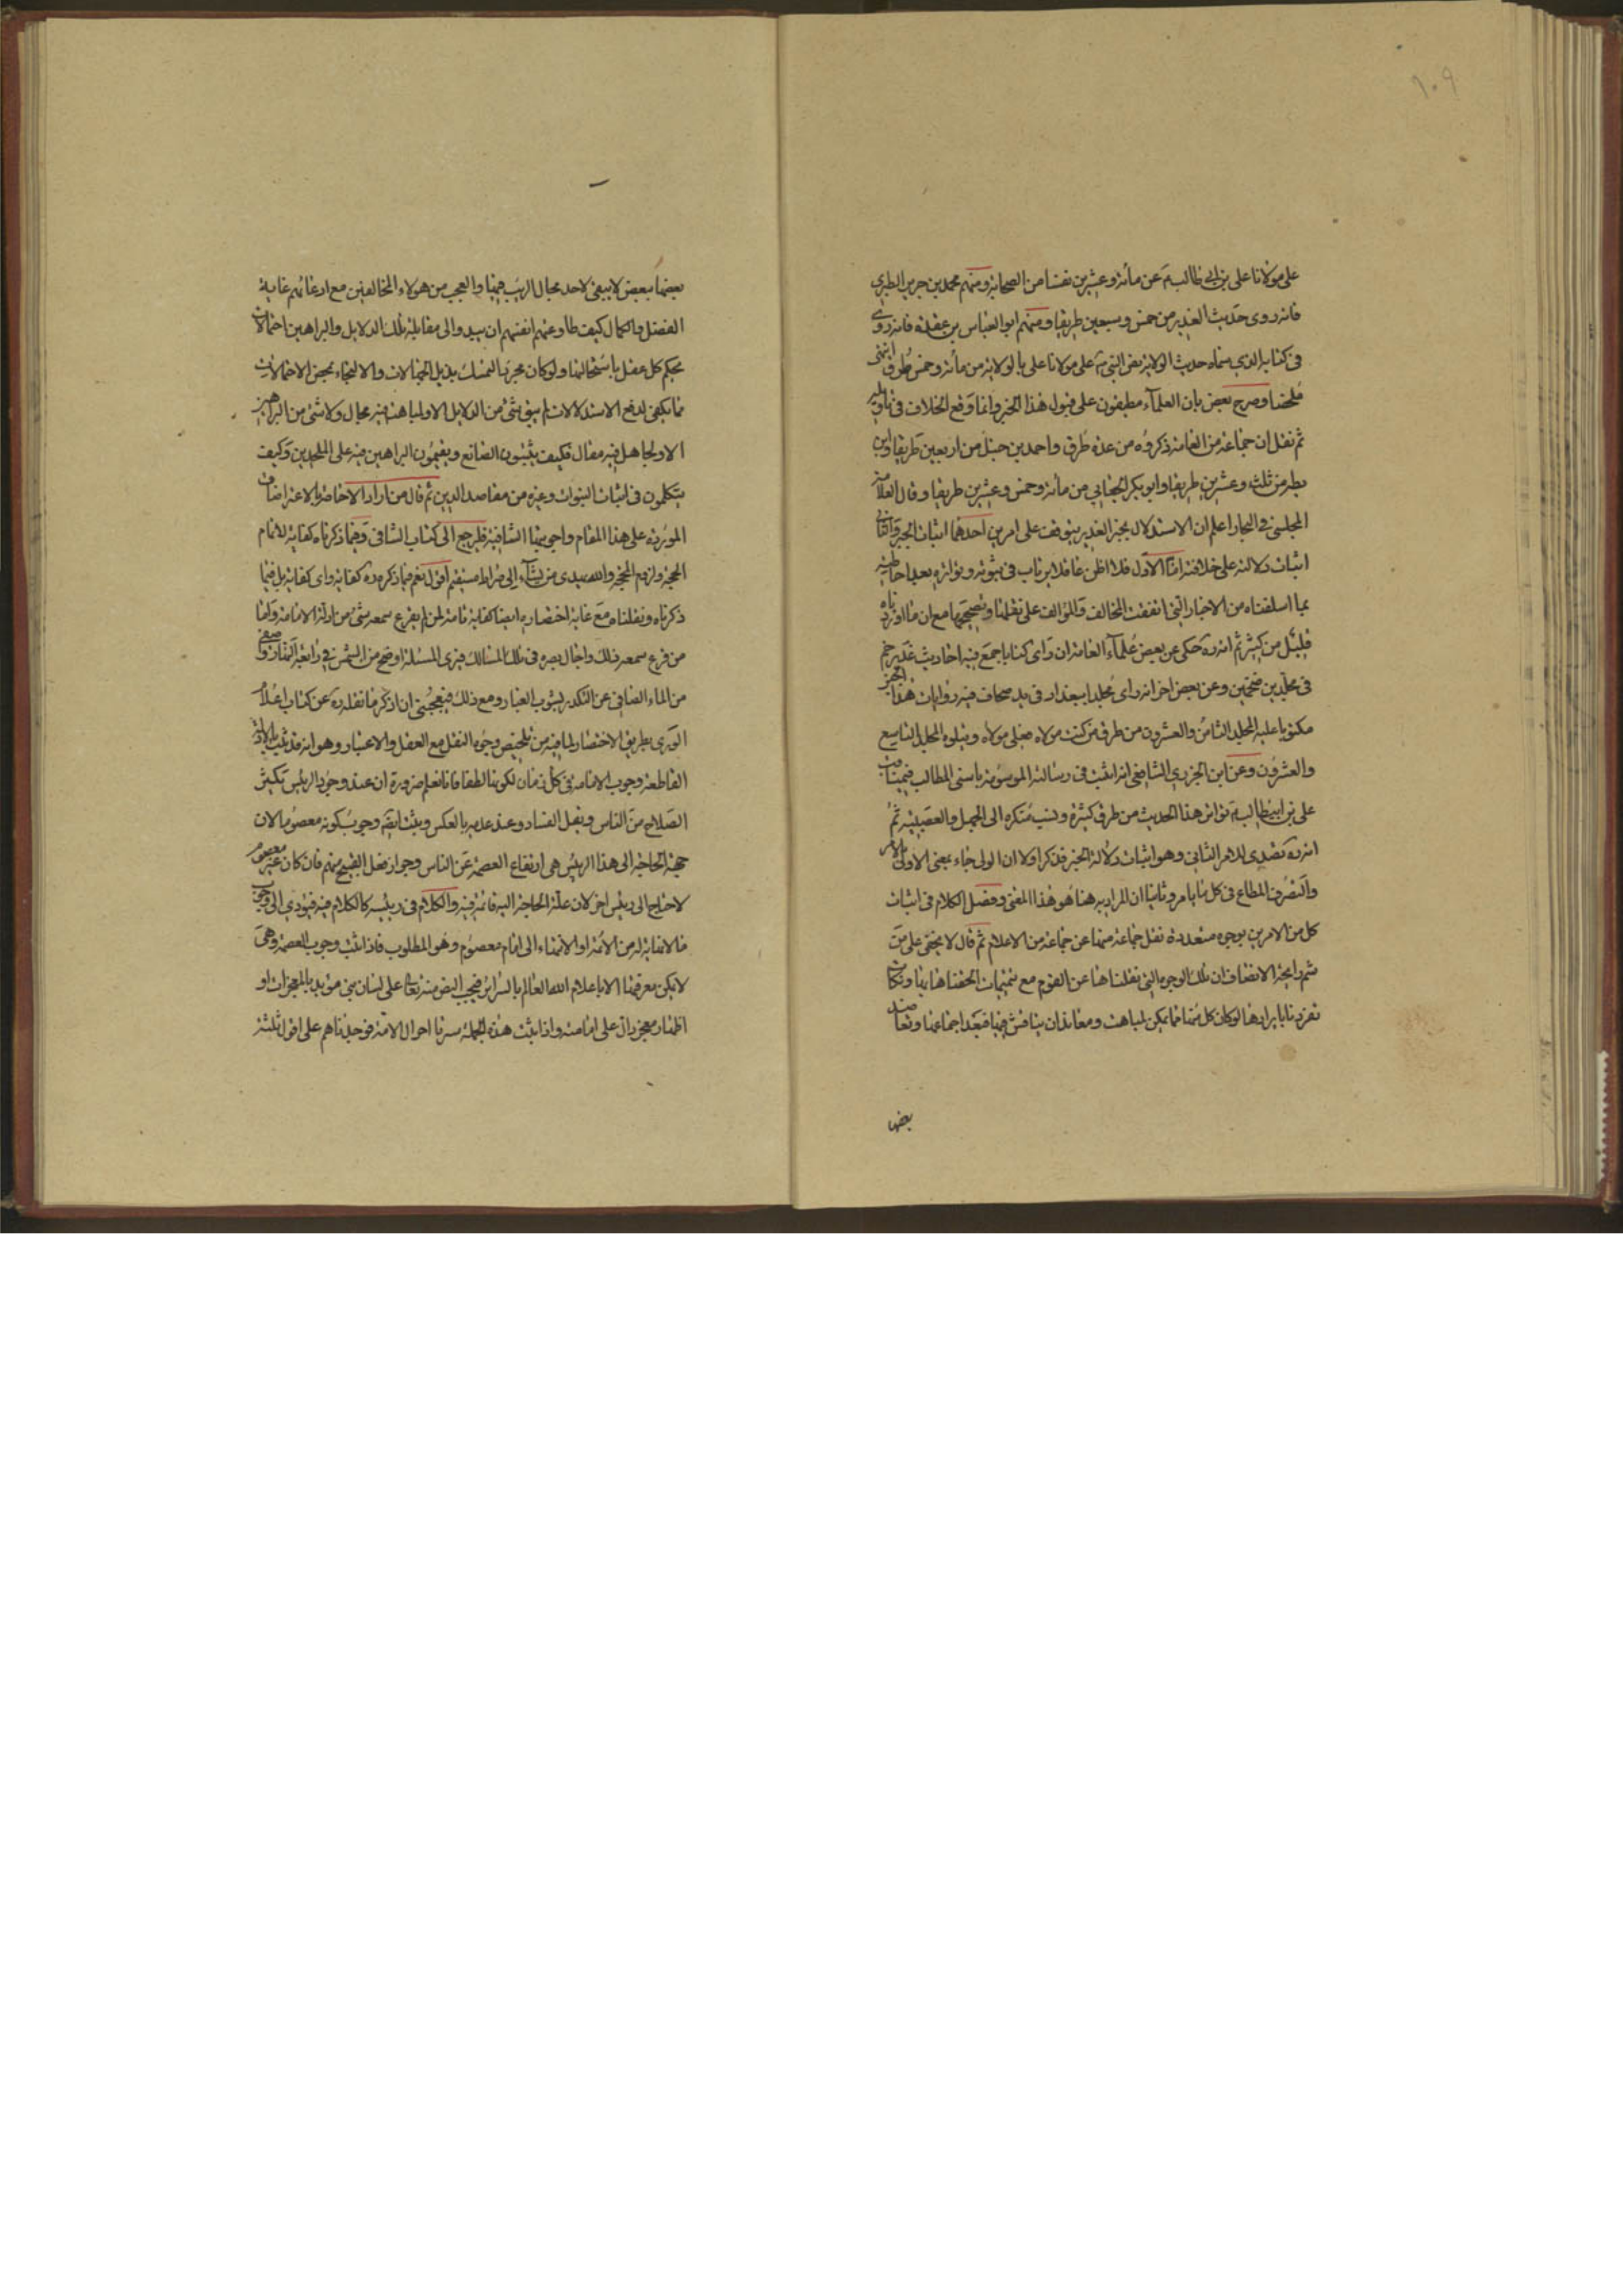 ١٠٩
على مولانا على بن ابي طالب ع عن مائة وعشرين نفسا من الصحابة ومنهم محمد بن جرير الطبري
فانه روى حديث الغدير من خمس وسبعين طريقا ومنهم ابو العباس بن عقدة فانه روى
فى كتابه الذي سماه حديث الولاية نص النبي ص على مولانا على بالولاية من مائة وخمس طرق انتهى
ملخصا وصرح بعض بان العلمآء مطبقون على قبول هذا الخبر وانما وقع الخلاف فى تاويله
ثم نقل ان جماعة من العامة ذكروه من عدة طرق واحمد بن حنبل من اربعين طريقا وابن
بطر من ثلث وعشرين طريقا وابو بكر الجعابي من مائة وخمس وعشرين طريقا وقال العلامة
المجلسى فى البحار اعلم ان الاستدلال بخبر الغدير يتوقف على امرين احدهما اثبات الخبر والثانى
اثبات دلالته على خلافته امّا الاوّل فلا اظن عاقلا يرتاب فى ثبوته وتواتره بعد احاطته
بما اسلفناه من الاخبار التى اتفقت المخالف والمؤالف على نقلها وتصحيحها مع ان ما اوردناه
قليل من كثير ثم انه ره حكى عن بعض علمآء العامة ان راى كتابا جمع فيه احاديث غدير خم
فى مجلدين ضخمين وعن بعض اخر انه راى مجلدا ببغداد فى يد صحاف فيه روايات هذا الخبر
مكتوبا عليه المجلد الثامن والعشرون من طرق من كنت مولاه فعلى مولاه ويتلوه المجلد التاسع
والعشرون وعن ابن الجزري الشافعى انه اثبت فى رسالته الموسومة باسنى المطالب فى مناقب
على بن ابيطالب ع تواتر هذا الحديث من طرق كثيرة ونسب منكره الى الجهل والعصبية ثم
انه ره تصدى للامر الثانى وهو اثبات دلالة الخبر فذكر اولا ان الولى جاء بمعنى الاولى بالامر
والتصرف المطاع فى كل ما يامر وثانيا ان المراد به هنا هو هذا المعنى وفصل الكلام فى اثبات
كل من الامرين بوجوه متعددة نقل جماعة منها عن جماعة من الاعلام ثم قال لا يخفى على من
شم رايحة الانصاف ان تلك الوجوه التى نقلناها عن القوم مع تتميمات الحقناها بها ونكات
تفردنا بايرادها لو كان كل منها مما يمكن لمباهت ومعاند ان يناقش فيها فبعد اجماعها وتعاضد
بعضها
بعضها ببعض لا يبقى لاحد مجال الريب فيها والعجب من هولاء المخالفين مع ادعائهم غاية
الفضل والكمال كيف طاوعتهم انفسهم ان يبدوا فى مقابلة تلك الدلايل والبراهين احتمالات
يحكم كل عقل باستحالتها ولو كان مجرد التمسك بذيل الجهالات والالتجاء بمحض الاحتمالات
مما يكفى لدفع الاستدلالات لم يبق شئ من الدلايل الا ولمباهت فيه مجال ولا شئ من البراهين
الا ولجاهل فيه مقال فكيف يثبتون الصانع ويقيمون البراهين فيه على الملحدين وكيف
يتكلمون فى اثبات النبوات وغيره من مقاصد الدين ثم قال من اراد الاحاطة بالاعتراضات
الموردة على هذا المقام واجوبتها الشافية فليرجع الى كتاب الشافى وفيما ذكرناه كفاية لاتمام
الحجة ولزوم المحجة والله يهدى من يشآء الى صراط مستقيم اقول نعم فيما ذكره ره كفاية واى كفاية بل فيما
ذكرناه ونقلناه مع غاية اختصاره ايضا كفاية تامة لمن لم يقرع سمعه شئ من ادلة الامامة واما
من قرع سمعه ذلك واجال بصره فى تلك المسالك فيرى المسئلة اوضح من الشمس فى رابعة النهار واصفى
من الماء الصافى عن التكدر بشوب الغبار ومع ذلك فيعجبنى ان اذكر ما نقله ره عن كتاب اعلام
الورى بطريق الاختصار لما فيه من تلخيص وجوه النقل مع العقل والاعتبار وهو انه قد ثبت بالادلة
القاطعة وجوب الامامة فى كل زمان لكونها لطفا فانا نعلم ضرورة ان عند وجود الرييس تكثير
الصلاح من الناس ويقل الفساد وعند عدمه بالعكس ويثبت ايضا وجوب كونه معصوما لان
جهة الحاجة الى هذا الرييس هى ارتفاع العصمة عن الناس وجواز فعل القبيح منهم فان كان غير معصوم
لاحتاج الى رييس اخر لان علة الحاجة اليه قائمة فيه والكلام فى رييسه كالكلام فيه فيؤدي الى وجوب
ما لا نهاية له من الائمة او الانتهاء الى امام معصوم وهو المطلوب فاذا ثبت وجوب العصمة وهى
لا يمكن معرفتها الا باعلام الله العالم بالسراير فيجب النص منه تعالى على لسان نبى مؤيد بالمعجزات او
اظهار معجز دال على امامته واذا ثبت هذه الجملة سبرنا احوال الامة فوجدناهم على اقوال ثلثة